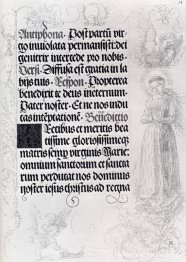 Antiphona. Post partū vir-
go inviolata permansisti: dei
genetrix intercede pro nobis.
Versi. Diffusa est gratia in la-
bijs tuis. Respon. Propterea
benedixit te deus in eternum.
Pater noster. Et ne nos indu
cas in tēptationē. Benedictio
Precibus et meritis bea-
tissime gloriosissimeq3
matris semp virginis Marie:
omnium sanctorum et sancta
rum perducat nos dominus
noster iesus christus ad regna